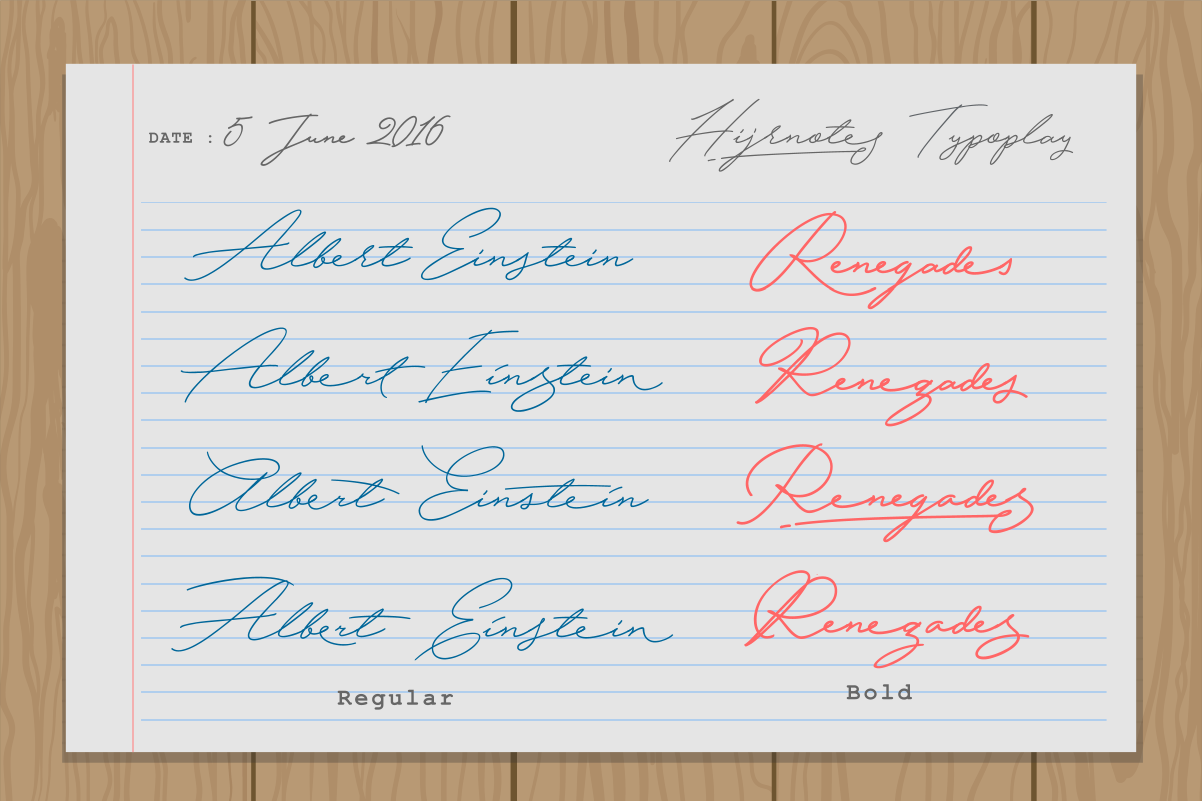 DATE : 5 June 2016 Hijrnotes Typoplay
Albert Einstein Renegades
Albert Einstein Renegades
Albert Einstein Renegades
Albert Einstein Renegades
Regular Bold